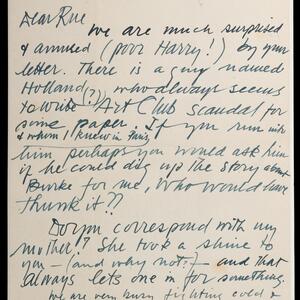 Dear Rue
We are much surprised
& amused (poor Harry!) by your
letter. There is a guy named
Holland (?), who always seems
to write Art Club scandal for
some paper. If you run into
& whom I knew in Paris
him perhaps you would ask him
if he could dig up the story about
Burke for me, who would have
thunk it??
Do you correspond with my
mother? She took a shine to
you — (and why not?) — and that
always lets one in for something.
We are very busy fighting cold &